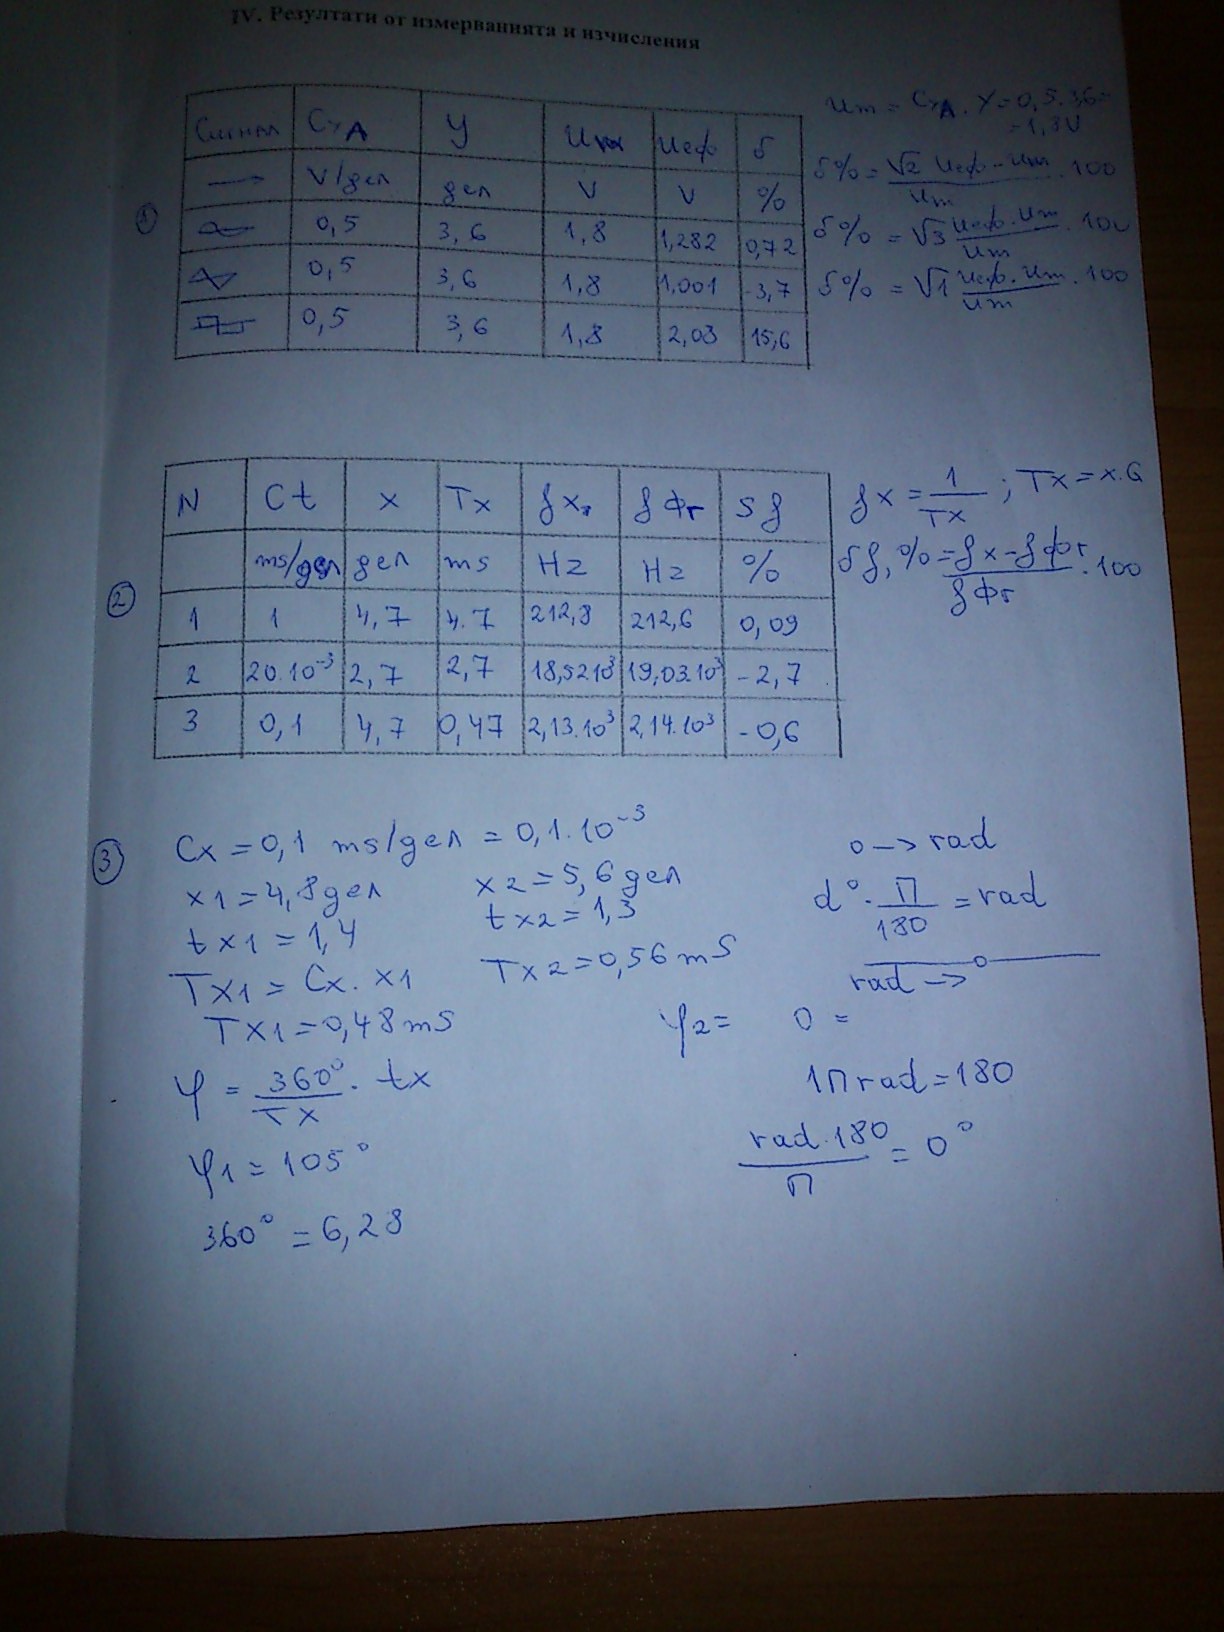 IV. Резултати от измерванията и изчисления
Um = CyA . Y = 0,5.3,6=
= 1,8V
Сигнал CyA Y Um Uеф δ
V/дел дел V V %
0,5 3,6 1,8 1,282 0,72
0,5 3,6 1,8 1,001 -3,7
0,5 3,6 1,8 2,08 15,6
①
δ% = √2 Uеф - Um / Um . 100
δ% = √3 Uеф . Um / Um . 100
δ% = √1 Uеф . Um / Um . 100
②
N Ct x Tx fx fФг Sf
ms/дел дел ms Hz Hz %
1 1 4,7 4.7 212,8 212,6 0,09
2 20.10⁻³ 2,7 2,7 18,52.10³ 19,03.10³ -2,7
3 0,1 4,7 0,47 2,13.10³ 2,14.10³ -0,6
fx = 1 / Tx ; Tx = x.C
δf,% = fx - fФг / fФг . 100
③ Cx = 0,1 ms/дел = 0,1.10⁻³
x1 = 4,8 дел x2 = 5,6 дел
tx1 = 1,4 tx2 = 1,3
Tx1 = Cx . x1 Tx2 = 0,56 mS
Tx1 = 0,48 mS φ2 =
φ = 360° / Tx . tx
φ1 = 105°
360° = 6,28
o -> rad
d° . П / 180 = rad
rad -> o
0 =
1П rad = 180
rad.180 / П = 0°